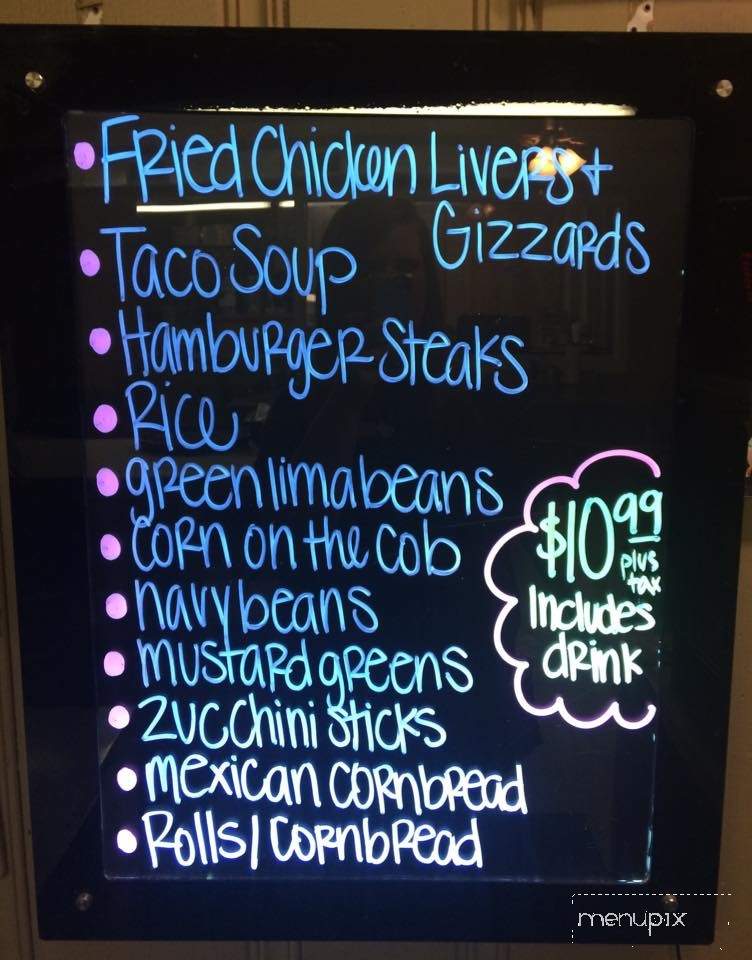 Fried Chicken Livers +
Gizzards
Taco Soup
Hamburger Steaks
Rice
green lima beans
corn on the cob
navy beans
mustard greens
zucchini sticks
mexican cornbread
Rolls/cornbread
$10.99
plus
tax
Includes
drink
menupix